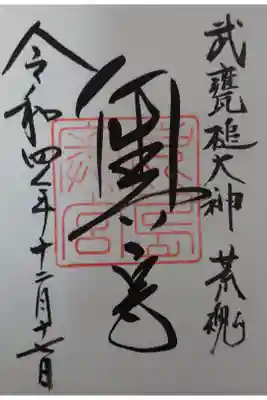 武甕槌大神 荒魂
奥宮
令和四年十二月十七日